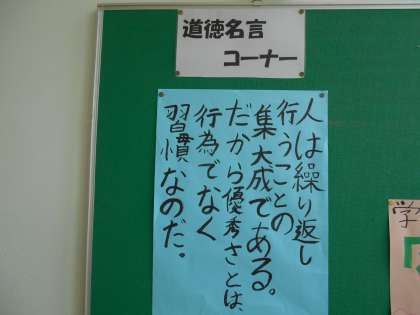 道徳名言
コーナー
人は繰り返し
行うことの
集大成である。
だから優秀さとは、
行為でなく
習慣なのだ。
学